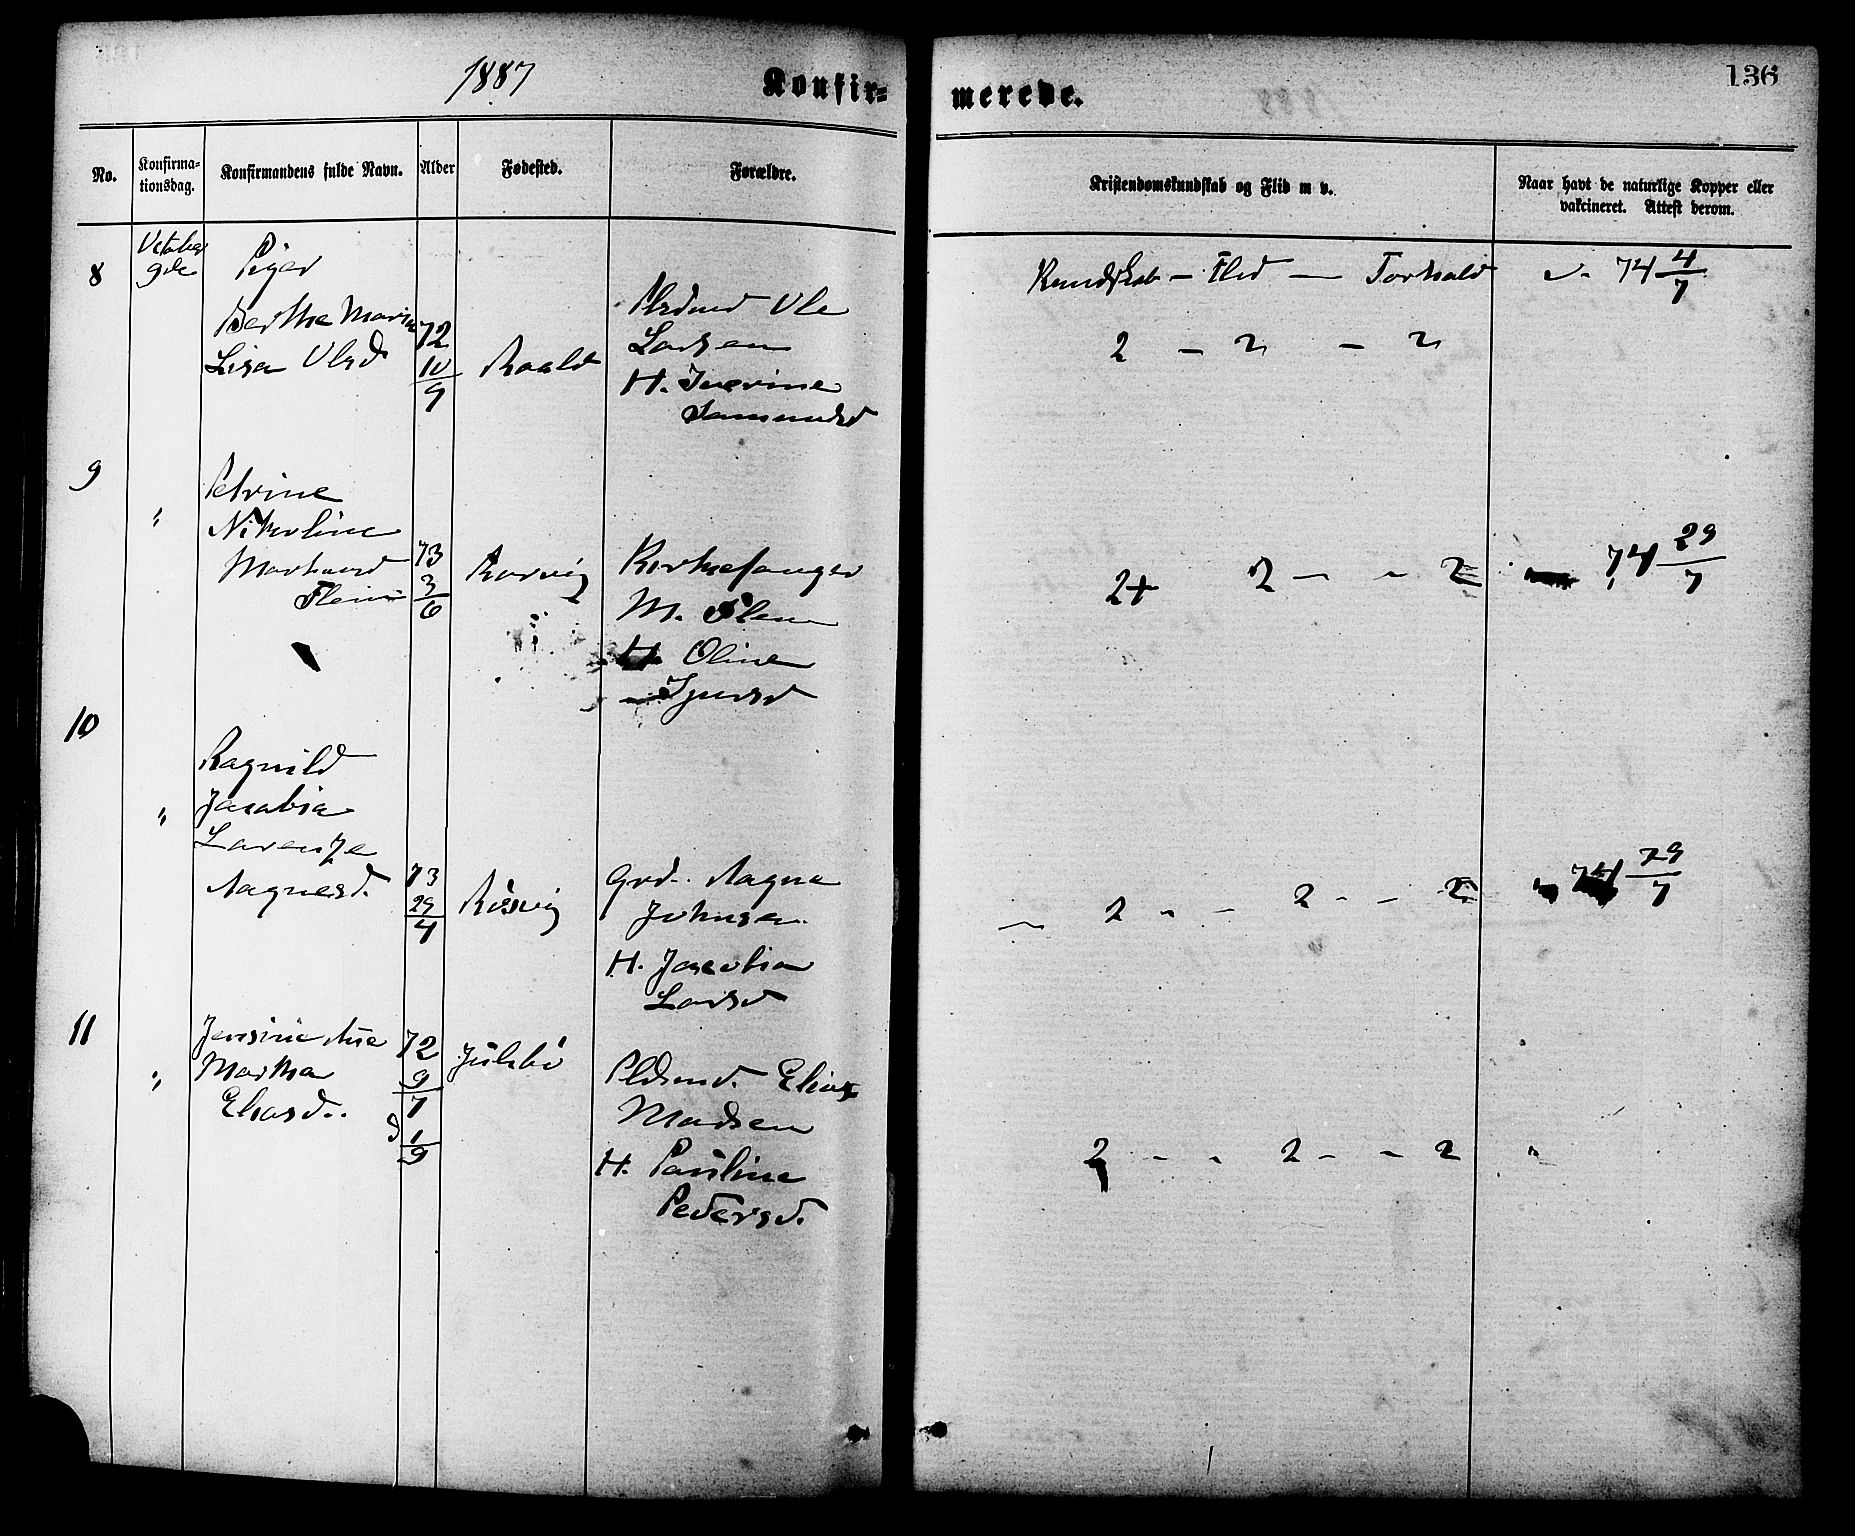 1887
Konfir=
merede.
136
No.
Konfirma-
tionsdag.
Konfirmandens fulde Navn.
Alder
Fødested.
Forældre.
Kristendomskundskab og Flid m v.
Naar havt de naturlige Kopper eller
vakcineret. Attest derom.
8
Octobr
9de
Piger
Berthe Marie
Lisa Olsd
72
10/9
Roald
Ole
Larsen
H. Iverine
Kundskab – Flid — Forhold
v. 74 4/7
2 – 2 – 2
9
"
Petrine
Nikoline
Flem
73
3/6
Kirkesanger
M. Flem
H. Oline
2+ 2 – - 2
74 29/7
10
"
Ragnild
Jacobia
Lorentze
Aagnesd.
73
29/4
Røsvig
Grd. Aagne
Johnsen
H. Jacobia
Larsd
– 2 - – 2 - – 2
" 74 29/7
11
"
Jensine Ane
Martha
Eliasd.
72
9/7
d 1/9
Julsbø
Pldsmd. Elias
Madsen
H. Pauline
Pedersd.
2 - - 2 - - 2 "